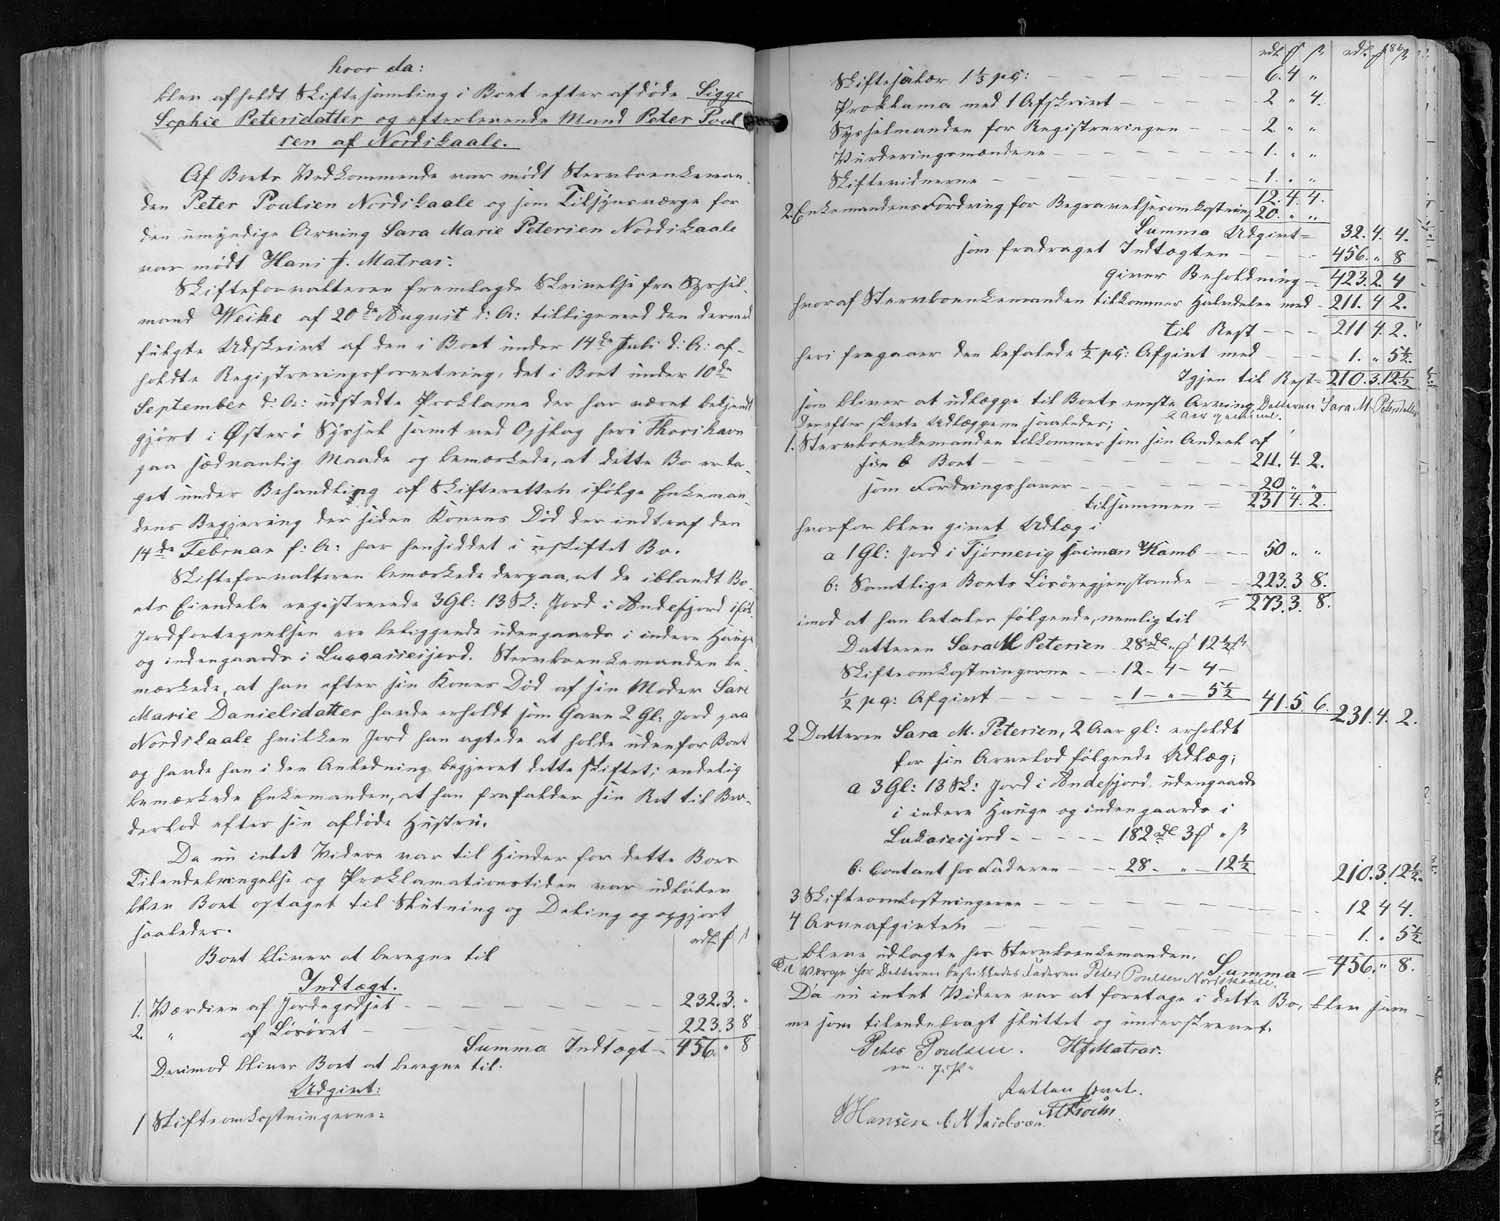 hvor da:
blev afholdt Skiftesamling i Boet efter afdøde Sigge
Sophie Petersdatter og efterlevende Mand Peter Poul
sen af Nordskaale.
Af Boets Vedkommende var mødt Stervboenkeman
den Peter Poulsen Nordskaale og som Tilsynsværge for
den umyndige Arving Sara Marie Petersen Nordskaale
var mødt Hans J. Matras.
Skifteforvalteren fremlagde Skrivelse fra Syssel-
mand Weihe af 20de August d: A: tilligemed den dermed
fulgte Udskrivt af den i Boet under 14de Juli d: A: af-
holdte Registreringsforretning, det i Boet under 10de
September d: A: udstedte Proklama der har været bekjendt
gjort i Østerø Syssel samt ved Opslag her i Thorshavn
paa sædvanlig Maade og bemærkede, at dette Bo er ta-
get under Behandling af Skifteretten ifølge Enkeman-
dens Begjering der siden Konens Død der indtraf den
14de Februar f: A: har hensiddet i uskiftet Bo.
Skifteforvalteren bemærkede derpaa, at de iblandt Bo-
ets Eiendele registrerede 3 Gl: 13 Sk: Jord i Andefjord ifølge
Jordfortegnelsen ere beliggende udengaards i indere Hauge
og indengaards i Lucassesjord. Stervboenkemanden be-
mærkede, at han efter sin Kones Død af sin Moder Sara
Marie Danielsdatter havde erholdt som Gave 2 Gl: Jord paa
Nordskaale hvilken Jord han agtede at holde udenfor Boet
og havde han i den Anledning begjeret dette skiftet; endelig
bemærkede Enkemanden, at han frafalder sin Ret til Bro-
derlod efter sin afdøde Hustru.
Da nu intet Videre var til Hinder for dette Boes
Tilendebringelse og Proklamationstiden var udløben
blev Boet optaget til Slutning og Deling og opgjort
saaledes.
rdl. ₰ ß
Boet bliver at beregne til
Indtægt.
1. Værdien af Jordegodset - 232. 3. "
2. " af Løsøret - 223. 3 8
Summa Indtægt - 456. " 8
Derimod bliver Boet at beregne til:
Udgivt:
1 Skifteomkostningerne:
rdl. ₰ ß rdl. ₰ ß
Skiftesalær 1⅓ pC: - 6. 4 "
Proklama med 1 Afskrivt - 2 " 4.
Sysselmanden for Registreringen - 2 " "
Vurderingsmændene - 1. " "
Skiftevidnerne - 1. " "
12. 4. 4.
2. Enkemandens Fordring for Begravelsesomkostning 20. " "
Summa Udgivt = 32. 4. 4.
som fradraget Indtægten - 456. " 8
giver Beholdning - 423. 2 4
hvoraf Stervboenkemanden tilkommer Halvdelen med - 211. 4 2.
til Rest - 211 4. 2.
heri fragaaer den befalede ½ pC: Afgivt med - 1. " 5½
Igjen til Rest = 210. 3. 12½
som bliver at udlægge til Boets eneste Arving, Datteren Sara M. Petersdatter
2 Aar gammel.
derefter skeete Udlæggene saaledes;
1. Stervboenkemanden tilkommer som sin Andeel af
sin b Boet - 211. 4. 2.
som Fordringshaver - 20 " "
tilsammen = 231 4. 2.
hvorfor blev givet Udlæg i
a 1 Gl: Jord i Tjørnevig Saimans Kamb - 50 " "
b: Samtlige Boets Løsøregjenstande - 223. 3 8.
= 273. 3. 8.
imod at han betaler følgende, nemlig til
Datteren Sara M Petersen 28 rdl " ₰ 12½ ß
Skifteomkostningerne - 12 - 4 - 4 -
½ pC: Afgivt - 1 - " - 5½
41. 5. 6. 231. 4. 2.
2 Datteren Sara M. Petersen, 2 Aar gl: erholdt
for sin Arvelod følgende Udlæg;
a 3 Gl: 13 Sk: Jord i Andefjord, udengaards
i indere Hauge og indengaards i
Lukassesjord - 182 rdl 3 ₰ " ß
b: Contant hos Faderen - 28. " 12½ 210. 3. 12½
3 Skifteomkostningerne - 12 4 4.
4 Arveafgivten - 1. " 5½
bleve udlagte hos Stervboenkemanden.
Summa = 456. " 8.
Til Værge for Datteren beskikkedes Faderen Peter Poulsen Nordskaale.
Da nu intet Videre var at foretage i dette Bo, blev sam-
me som tilendebragt sluttet og underskrevet.
Peter Poulsen. HJMatras.
m. f. P.
Retten hævet.
JHansen C M Jacobsen